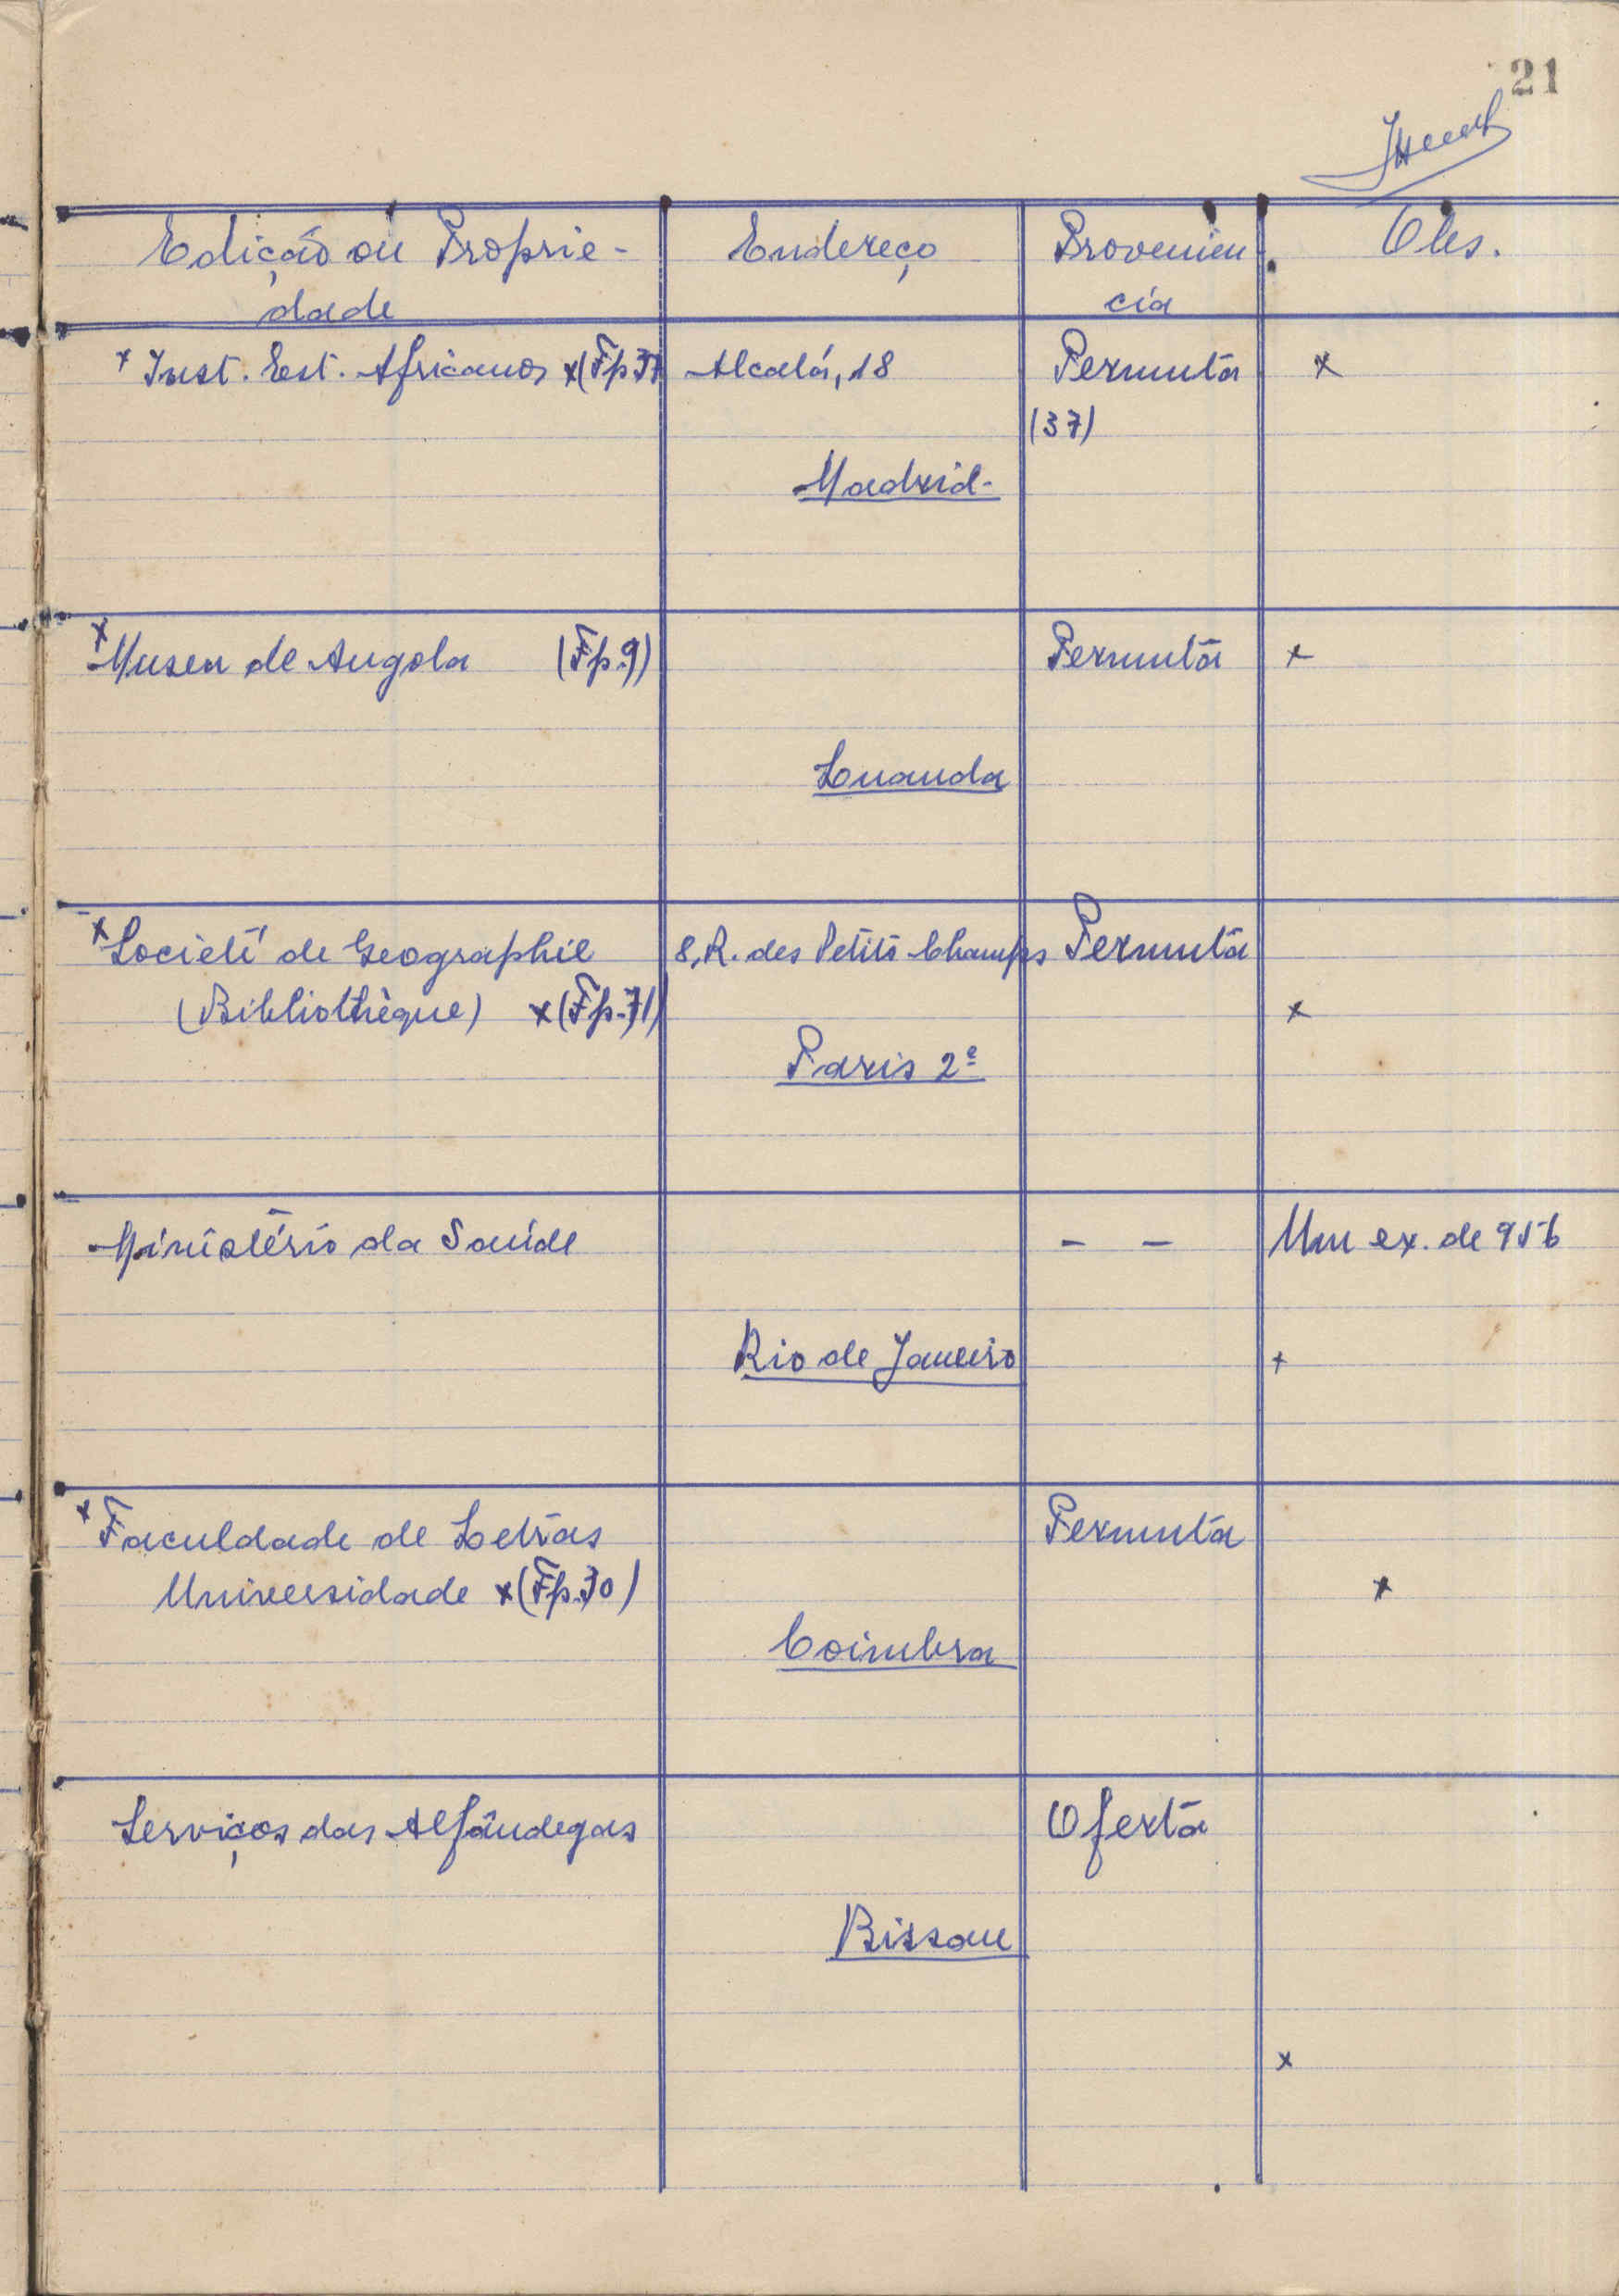 21
Edição ou Proprie- Endereço Provenien Obs.
dade cia
x Inst. Est. Africanos x (Fp.37) Alcalá, 18 Permuta x
(37)
Madrid-
x Museu de Angola (Fp.9) Permuta x
Luanda
x Societé de Geographie 8, R. des Petits Champs Permuta
(Bibliothèque) x (Fp.71) x
Paris 2e
Ministério da Saúde - - Um ex. de 956
Rio de Janeiro x
x Faculdade de Letras Permuta
Universidade x (Fp.30) x
Coimbra
Serviços das Alfândegas Oferta
Bissau
x